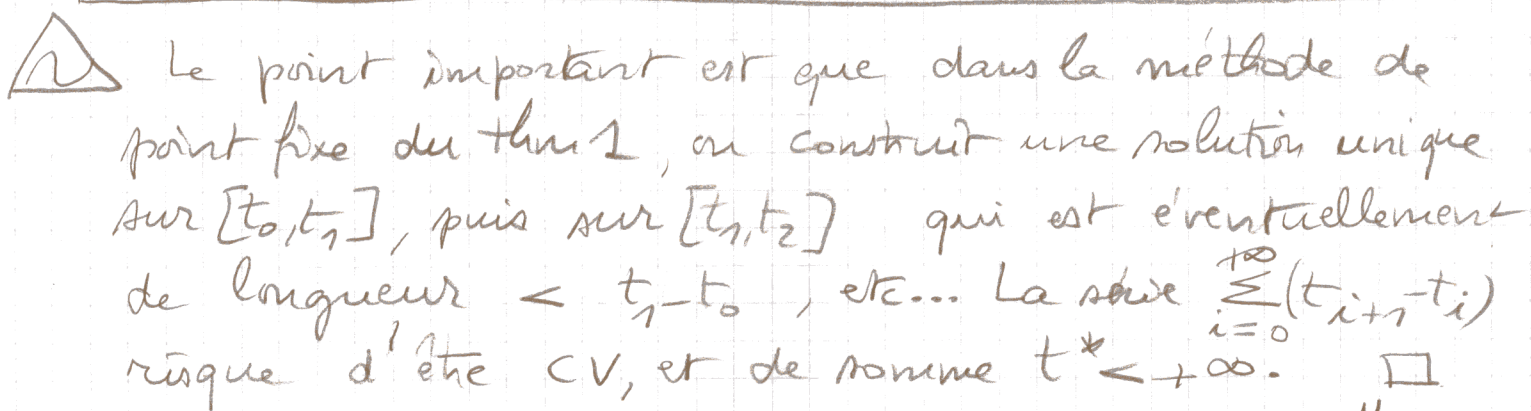 Le point important est que dans la méthode de
point fixe du thm 1, on construit une solution unique
sur [t₀,t₁], puis sur [t₁,t₂] qui est éventuellement
de longueur < t₁-t₀, etc... La série $\sum_{i=0}^{+\infty}(t_{i+1}-t_i)$
risque d'être CV, et de somme t* < +∞. □